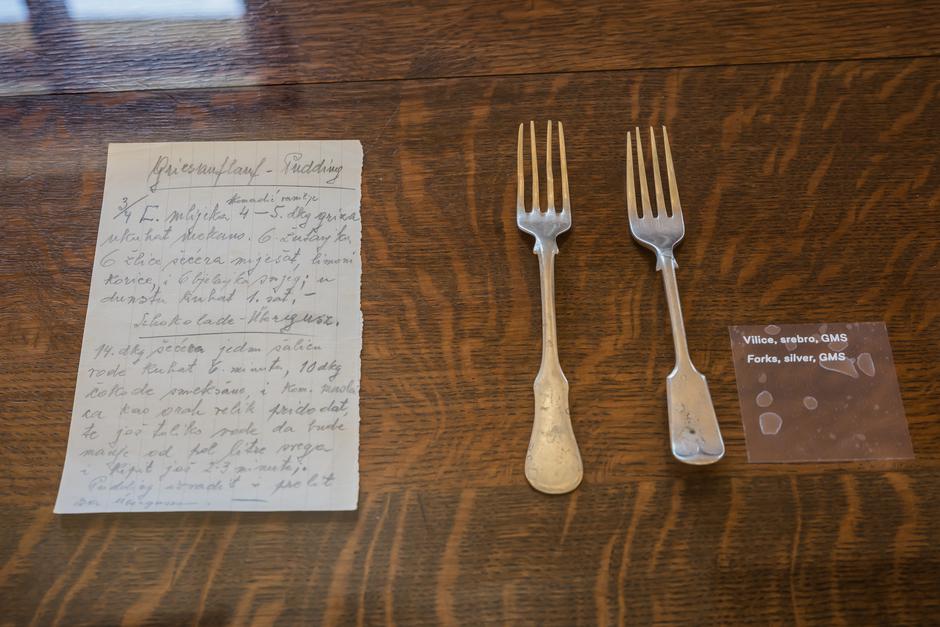 Griesauflauf - Pudding
komadić vanilije
3/4 L. mlijeka 4-5. dkg griza
ukuhat mekano. 6 žutanjka
6 žlice šećera miješat, limoni
korice, i 6 bjelanjka snijeg; u
dunstu kuhat 1. sat. -
Schokolade-Überguss.
14. dkg šećera jednu šalicu
vode kuhat 6 minuta, 10 dkg
čokolade smekšane, i kom. masla
ca kao orah velik pridodat,
te još toliko vode da bude
manje od pol litre svega
i kipit još 2-3 minutej.
Pudding izvadit i prelit
Vilice, srebro, GMS
Forks, silver, GMS